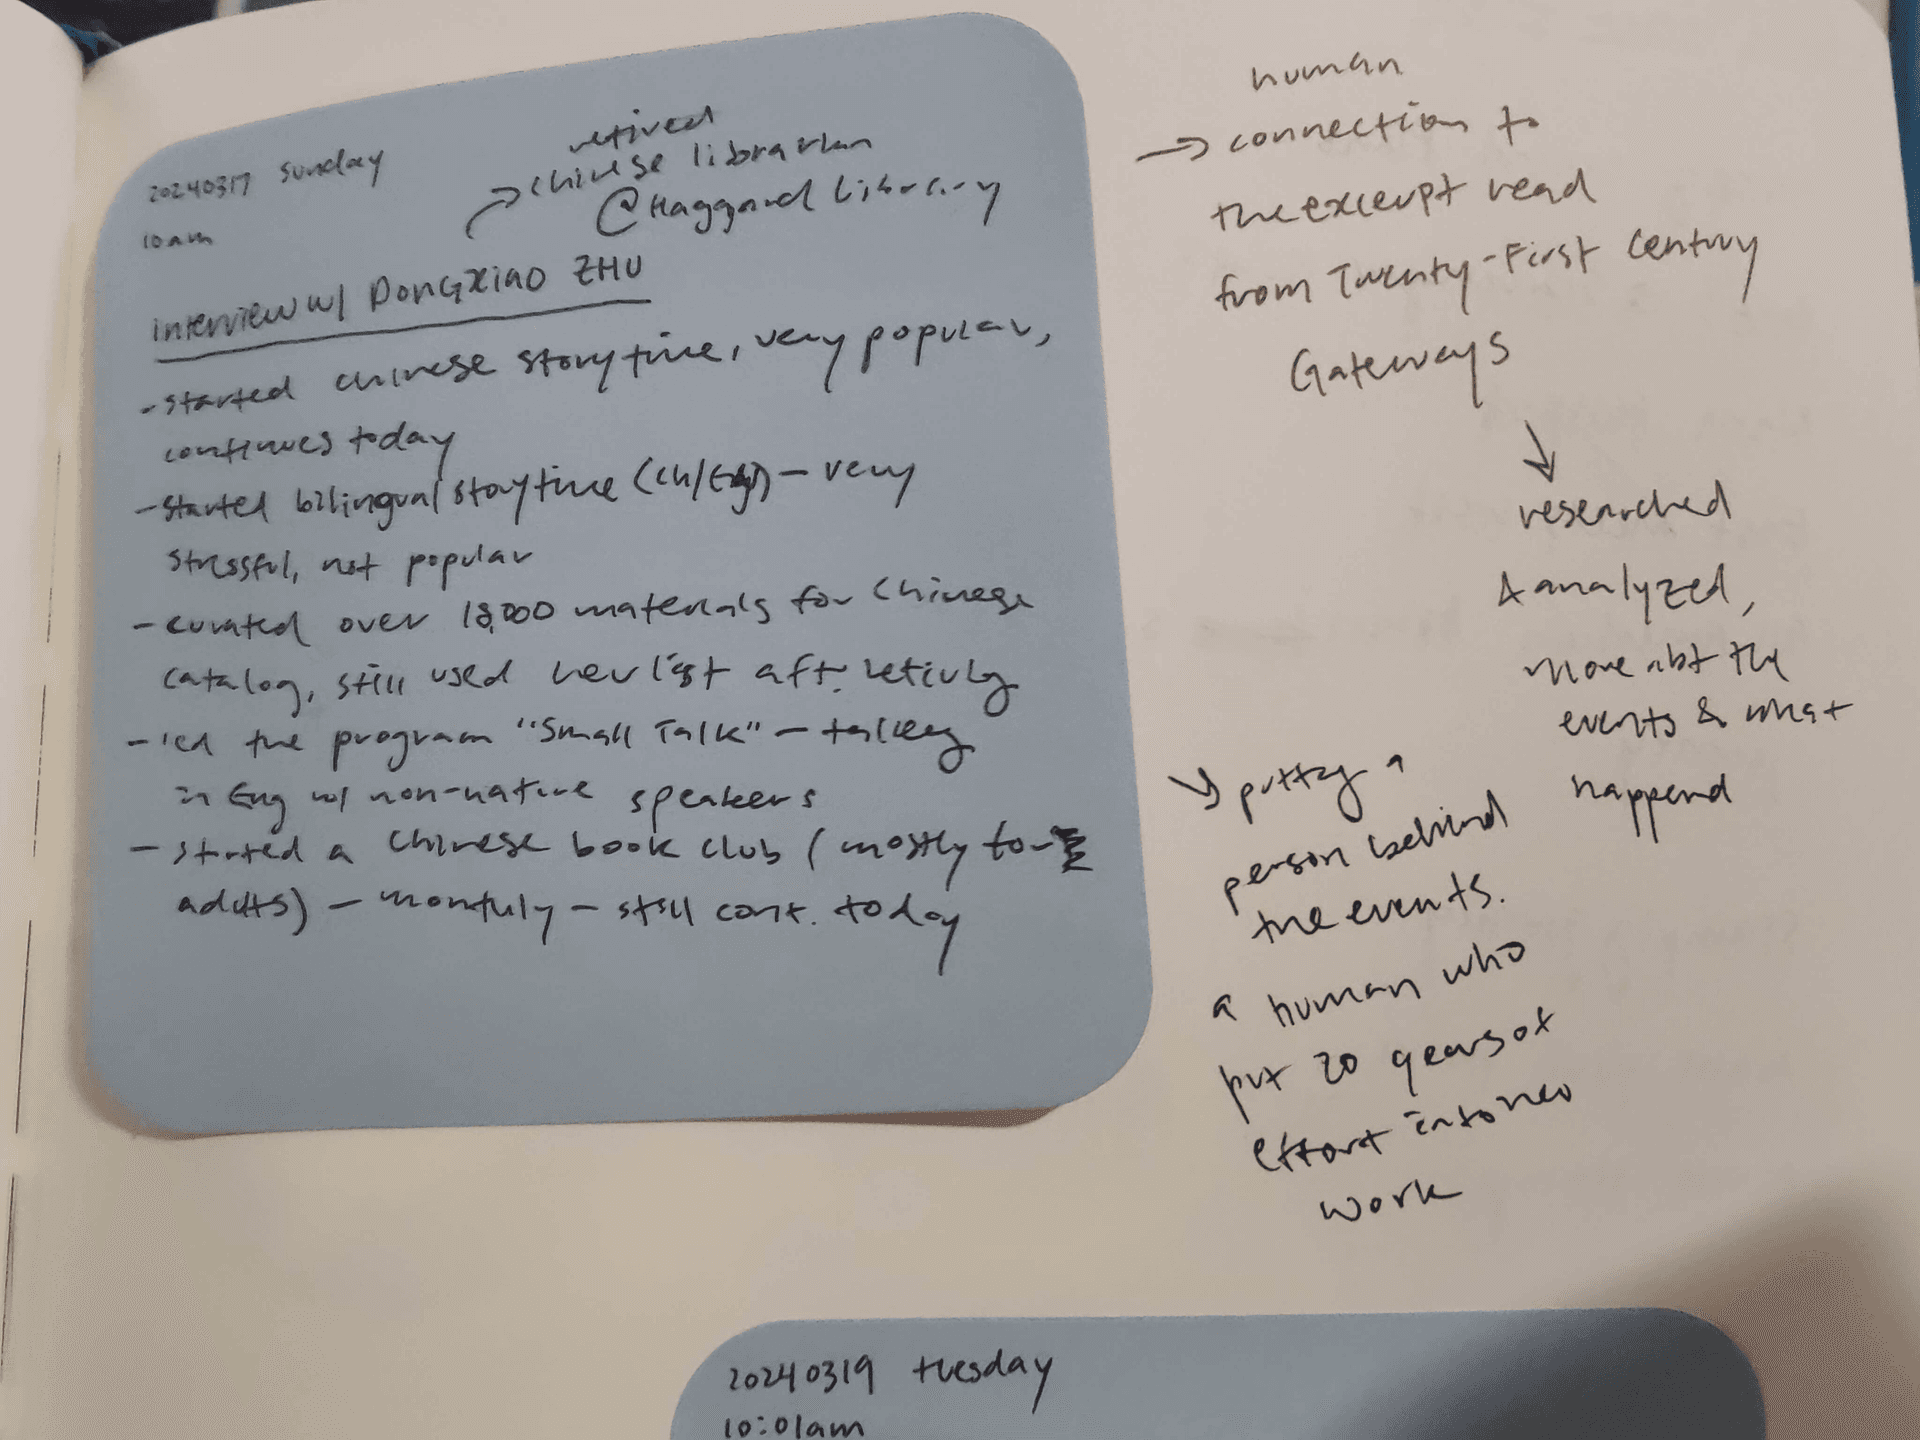 20240317 sunday
10am
retired
chinese librarian
@Haggard Library
interview w/ DONGXIAO ZHU
- started chinese storytime, very popular,
continues today
- started bilingual storytime (Ch/Eng) - very
stressful, not popular
- curated over 18,000 materials for Chinese
catalog, still used her list aft. retiring
- led the program "Small Talk" - talking
in Eng w/ non-native speakers
- started a Chinese book club (mostly for
adults) - monthly - still cont. today
human
→ connection to
the excerpt read
from Twenty-First Century
Gateways
researched
& analyzed,
more abt the
events & what
happend
→ putting a
person behind
the events.
a human who
put 20 years of
effort into her
work
20240319 tuesday
10:01am